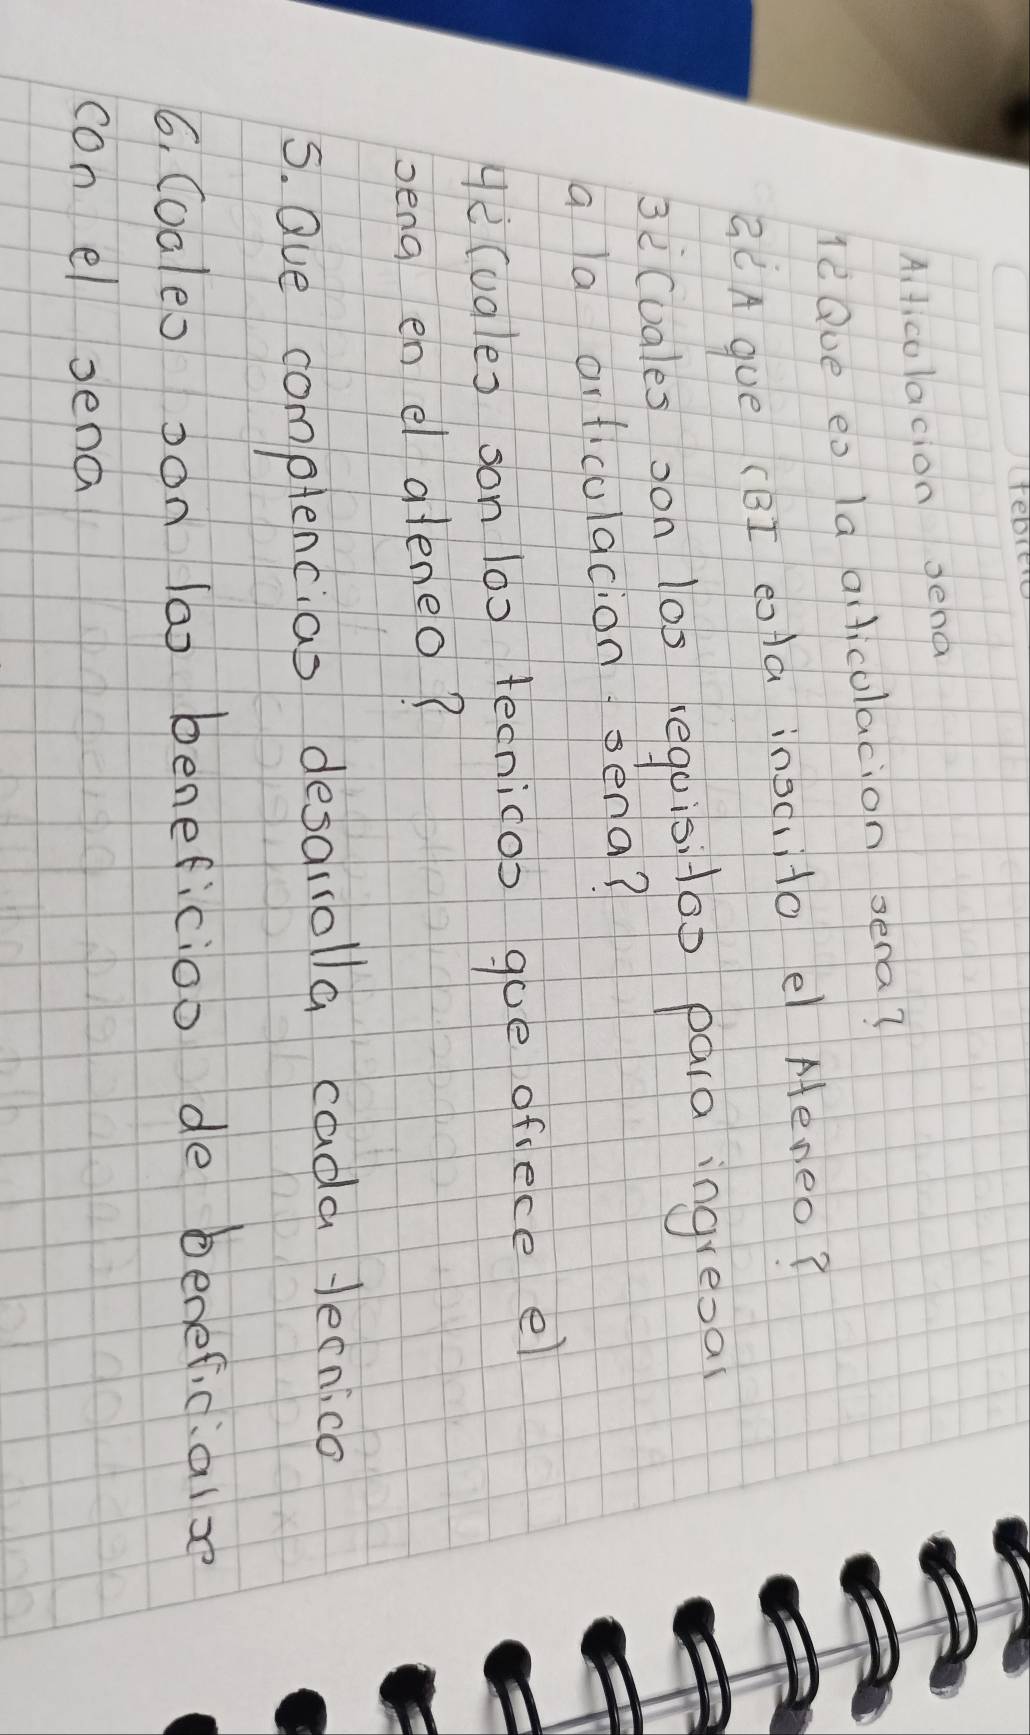 Articulacion sena
1¿Que es la articulacion sena?
2¿A que CBI esta inscrito el Ateneo?
3¿Cuales son los requisitos para ingresar
a la articulacion sena?
4¿Cuales son los tecnicos que ofrece el
sena en el ateneo?
5. Que comptencias desarrolla cada tecnico
6. Cuales son los beneficios de beneficiarx
con el sena